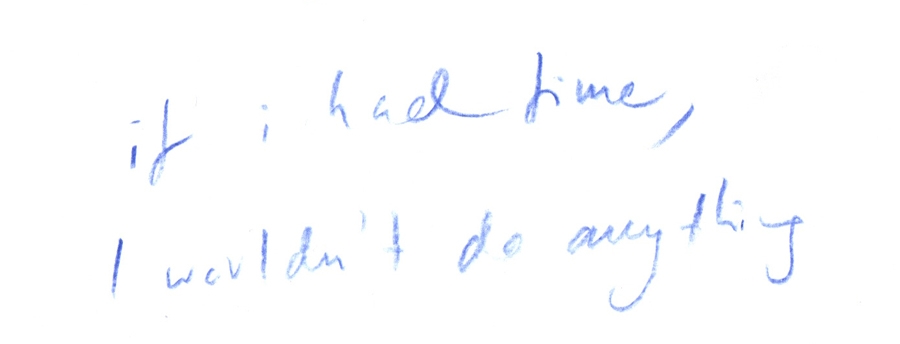 if i had time,
I wouldn't do anything